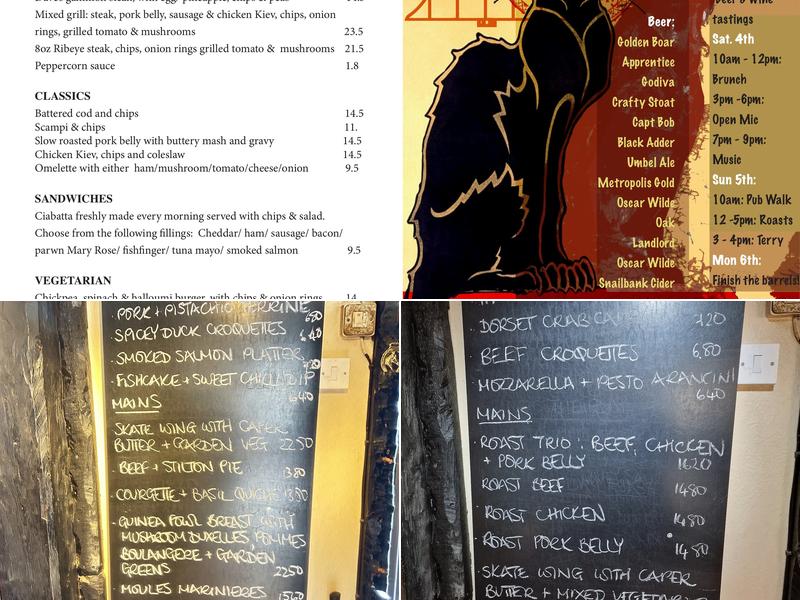 Mixed grill: steak, pork belly, sausage & chicken Kiev, chips, onion
rings, grilled tomato & mushrooms 23.5
8oz Ribeye steak, chips, onion rings grilled tomato & mushrooms 21.5
Peppercorn sauce 1.8
CLASSICS
Battered cod and chips 14.5
Scampi & chips 11.
Slow roasted pork belly with buttery mash and gravy 14.5
Chicken Kiev, chips and coleslaw 14.5
Omelette with either ham/mushroom/tomato/cheese/onion 9.5
SANDWICHES
Ciabatta freshly made every morning served with chips & salad.
Choose from the following fillings: Cheddar/ ham/ sausage/ bacon/
parwn Mary Rose/ fishfinger/ tuna mayo/ smoked salmon 9.5
VEGETARIAN
Chickpea, spinach & halloumi burger, with chips & onion rings 14
Beer:
Golden Boar
Apprentice
Godiva
Crafty Stoat
Capt Bob
Black Adder
Umbel Ale
Metropolis Gold
Oscar Wilde
Oak
Landlord
Oscar Wilde
Snailbank Cider
Beer & Wine
tastings
Sat. 4th
10am - 12pm:
Brunch
3pm -6pm:
Open Mic
7pm - 9pm:
Music
Sun 5th:
10am: Pub Walk
12 -5pm: Roasts
3 - 4pm: Terry
Mon 6th:
Finish the barrels!
PORK + PISTACHIO TERRINE
680
SPICEY DUCK CROQUETTES 640
SMOKED SALMON PLATTER
FISHCAKE + SWEET CHILLI DIP
640
MAINS
SKATE WING WITH CAPER
BUTTER + GARDEN VEG 2250
BEEF + STILTON PIE
1380
COURGETTE + BASIL QUICHE 1350
GUINEA FOWL BREAST WITH
MUSHROOM DUXELLES, POMMES
BOULANGERE + GARDEN
GREENS 2250
MOULES MARINIERES 1560
DORSET CRAB 720
BEEF CROQUETTES 6,80
MOZZARELLA + PESTO ARANCINI
640
MAINS
ROAST TRIO: BEEF, CHICKEN
+ PORK BELLY 1620
ROAST BEEF 1480
ROAST CHICKEN 1480
ROAST PORK BELLY 1480
SKATE WING WITH CAPER
BUTTER + MIXED VEGETABLES